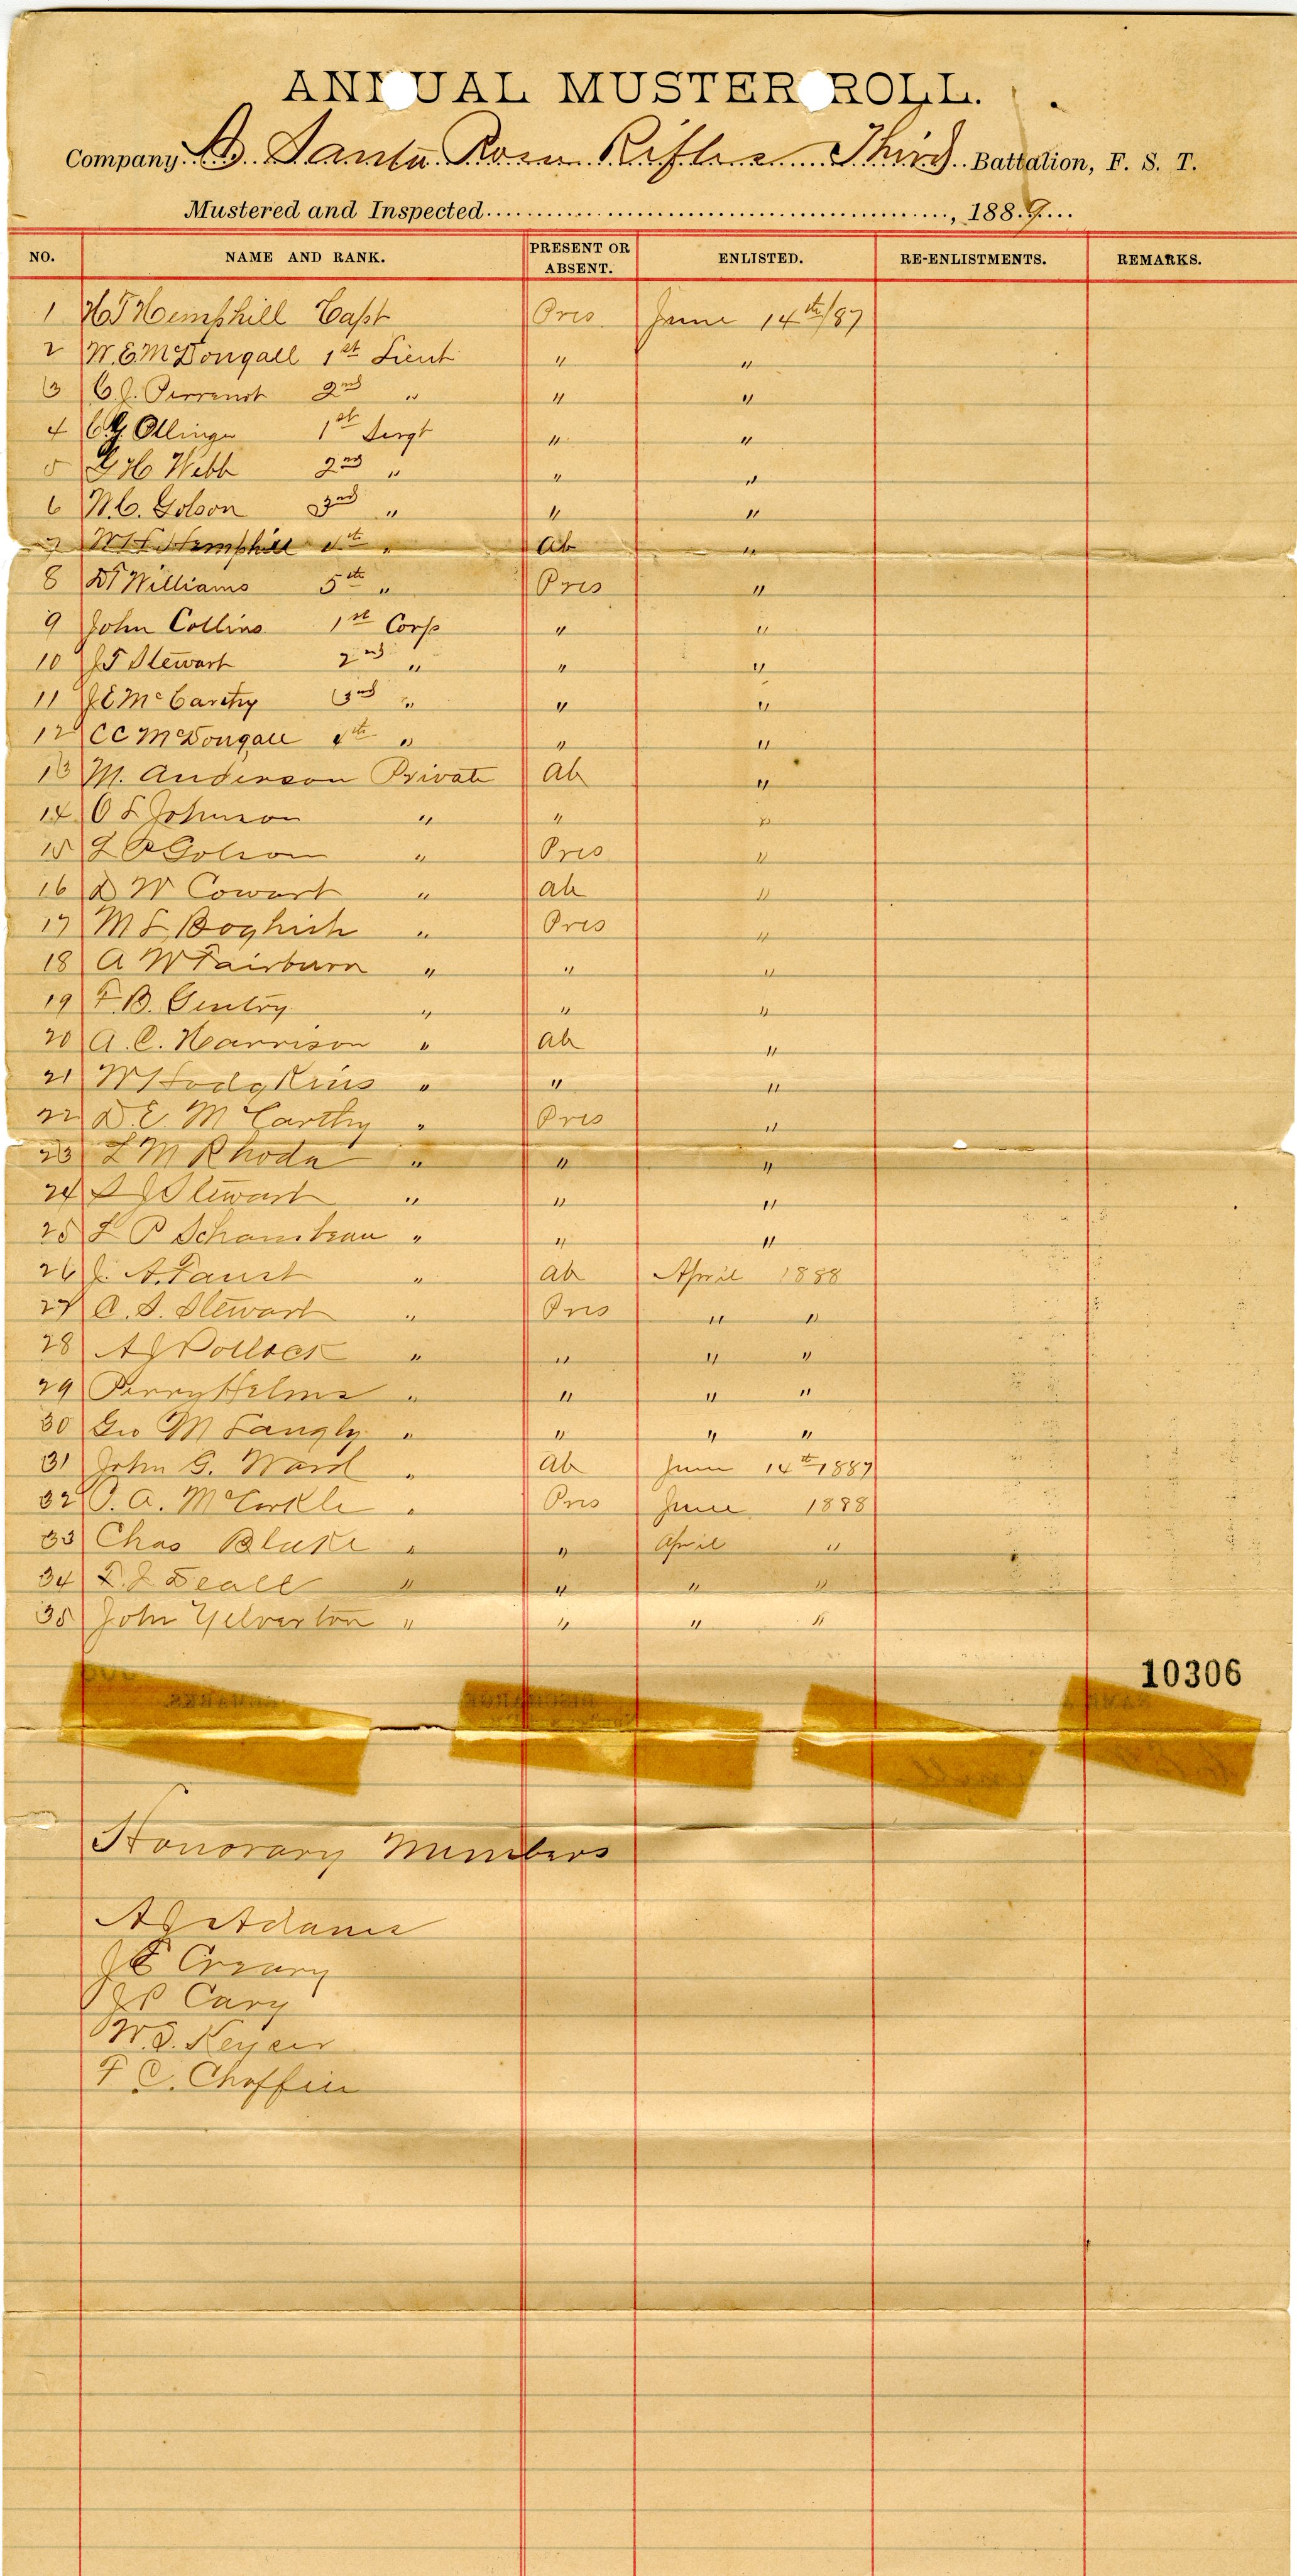 ANNUAL MUSTER ROLL.
Company D. Santa Rosa Rifles Third Battalion, F. S. T.
Mustered and Inspected, 1889
NO. NAME AND RANK. PRESENT OR ABSENT. ENLISTED. RE-ENLISTMENTS. REMARKS.
1 H T Hemphill Capt Pres June 14th/87
2 W. E. McDougall 1st Lieut " "
3 C. J. Perrenot 2nd " " "
4 C. G. Ollinger 1st Sergt " "
5 G H Webb 2nd " " "
6 W. C. Golson 3rd " " "
7 Hemphill 4th " Ab "
8 D T Williams 5th " Pres "
9 John Collins 1st Corp " "
10 J T Stewart 2nd " " "
11 J E McCarthy 3rd " " "
12 C C McDougall 4th " " "
13 M. Anderson Private Ab "
14 O L Johnson " " "
15 L P Golson " Pres "
16 D W Cowart " ab "
17 M L Boghich " Pres "
18 A W Fairburn " " "
19 F. B. Gentry " " "
20 A. C. Harrison " ab "
21 W Hodgkins " " "
22 D. E. McCarthy " Pres "
23 L M Rhoda " " "
24 S J Stewart " " "
25 L P Schambeau " " "
26 J. A. Faust " ab April 1888
27 C. S. Stewart " Pres " "
28 A J Pollock " " " "
29 Perry Helms " " " "
30 Geo M Langly " " " "
31 John G. Ward " Ab June 14th 1887
32 P. A. McCorkle " Pres June 1888
33 Chas Blake " " April "
34 Beall " " " "
35 John Yelverton " " " "
10306
Honorary Members
A J Adams
J E Creary
J P Cary
W. S. Keyser
F C. Chaffin